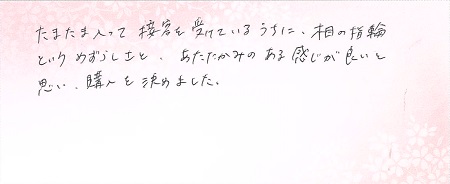 たまたま入って接客を受けているうちに、相の指輪
というめずらしさと、あたたかみのある感じが良いと
思い、購入を決めました。